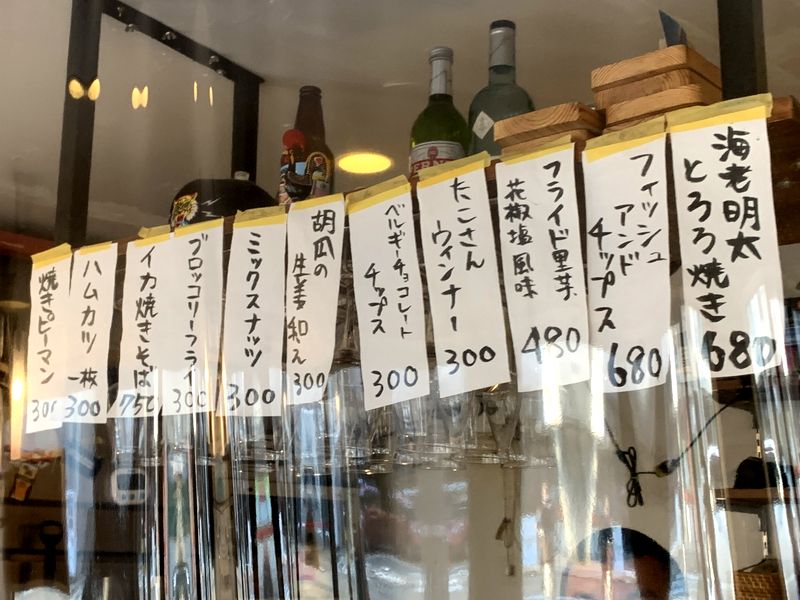 海老明太
とろろ焼き
680
フィッシュ
アンド
チップス
680
フライド里芋
花椒塩風味
480
たこさん
ウィンナー
300
ベルギーチョコレート
チップス
300
胡瓜の
生姜和え
300
ミックスナッツ
300
ブロッコリーフライ
300
イカ焼きそば
750
ハムカツ 一枚
300
焼きピーマン
300